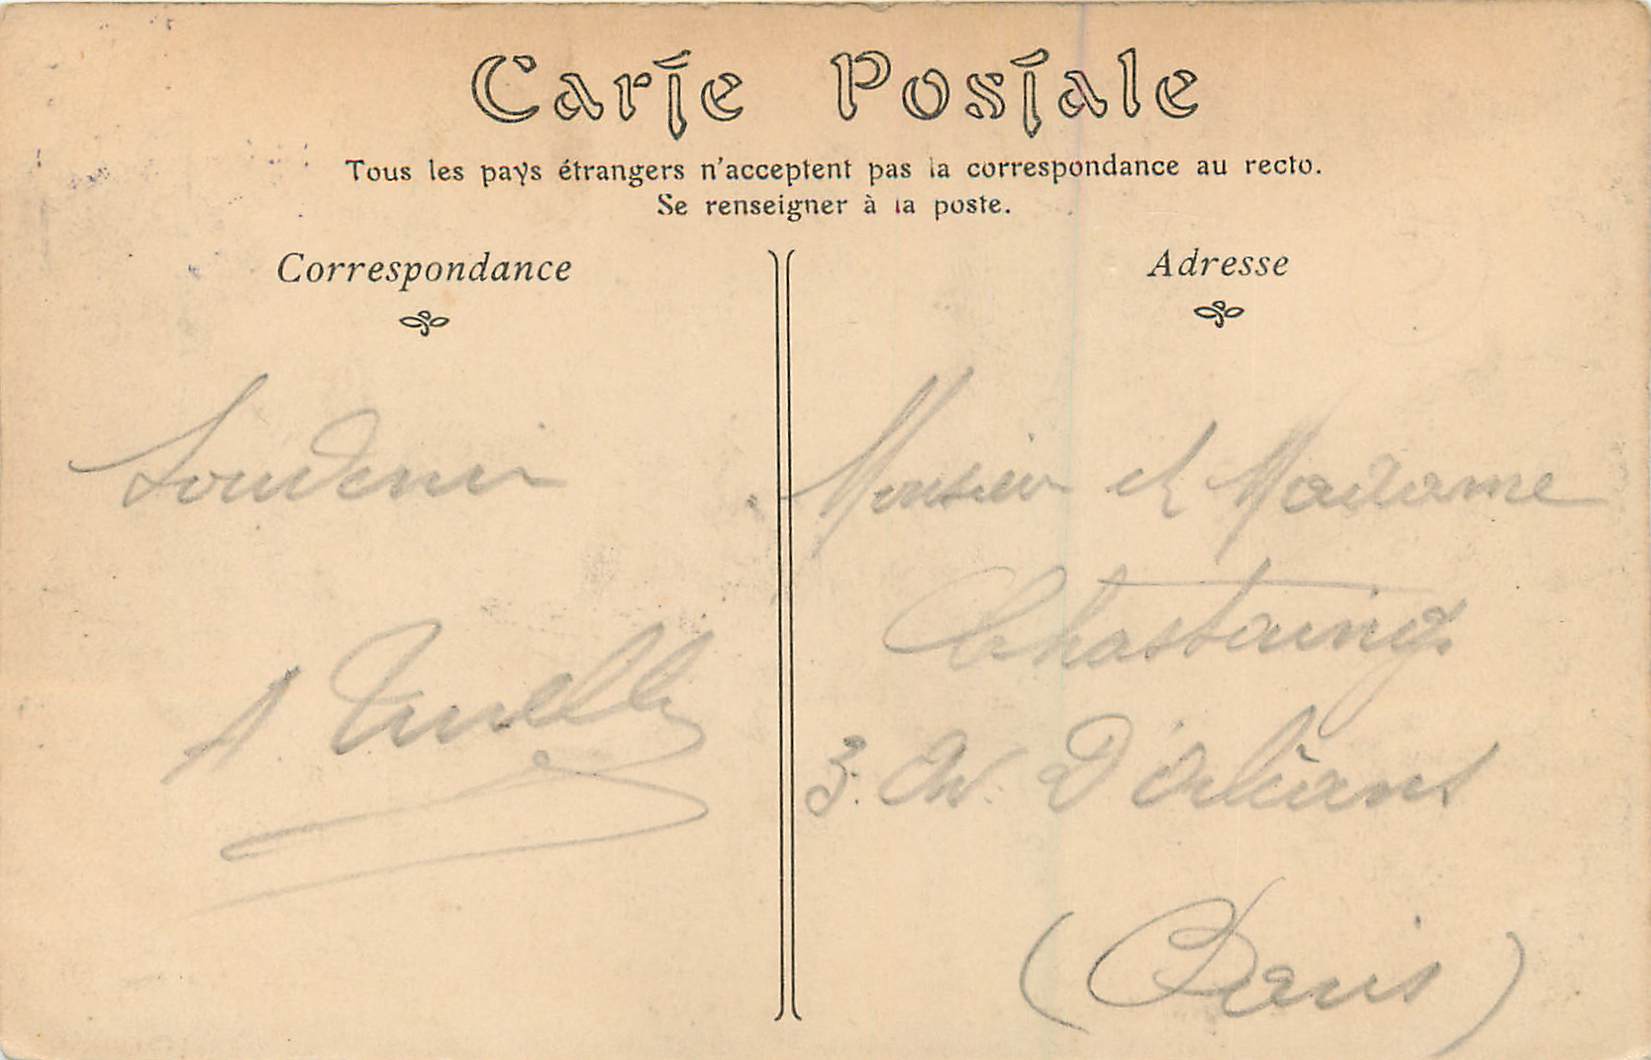 Carte Postale
Tous les pays étrangers n'acceptent pas la correspondance au recto.
Se renseigner à la poste.
Correspondance
Souvenir
A
Adresse
Monsieur et Madame
Chastaing
3. Av. D'Orléans
(Paris)